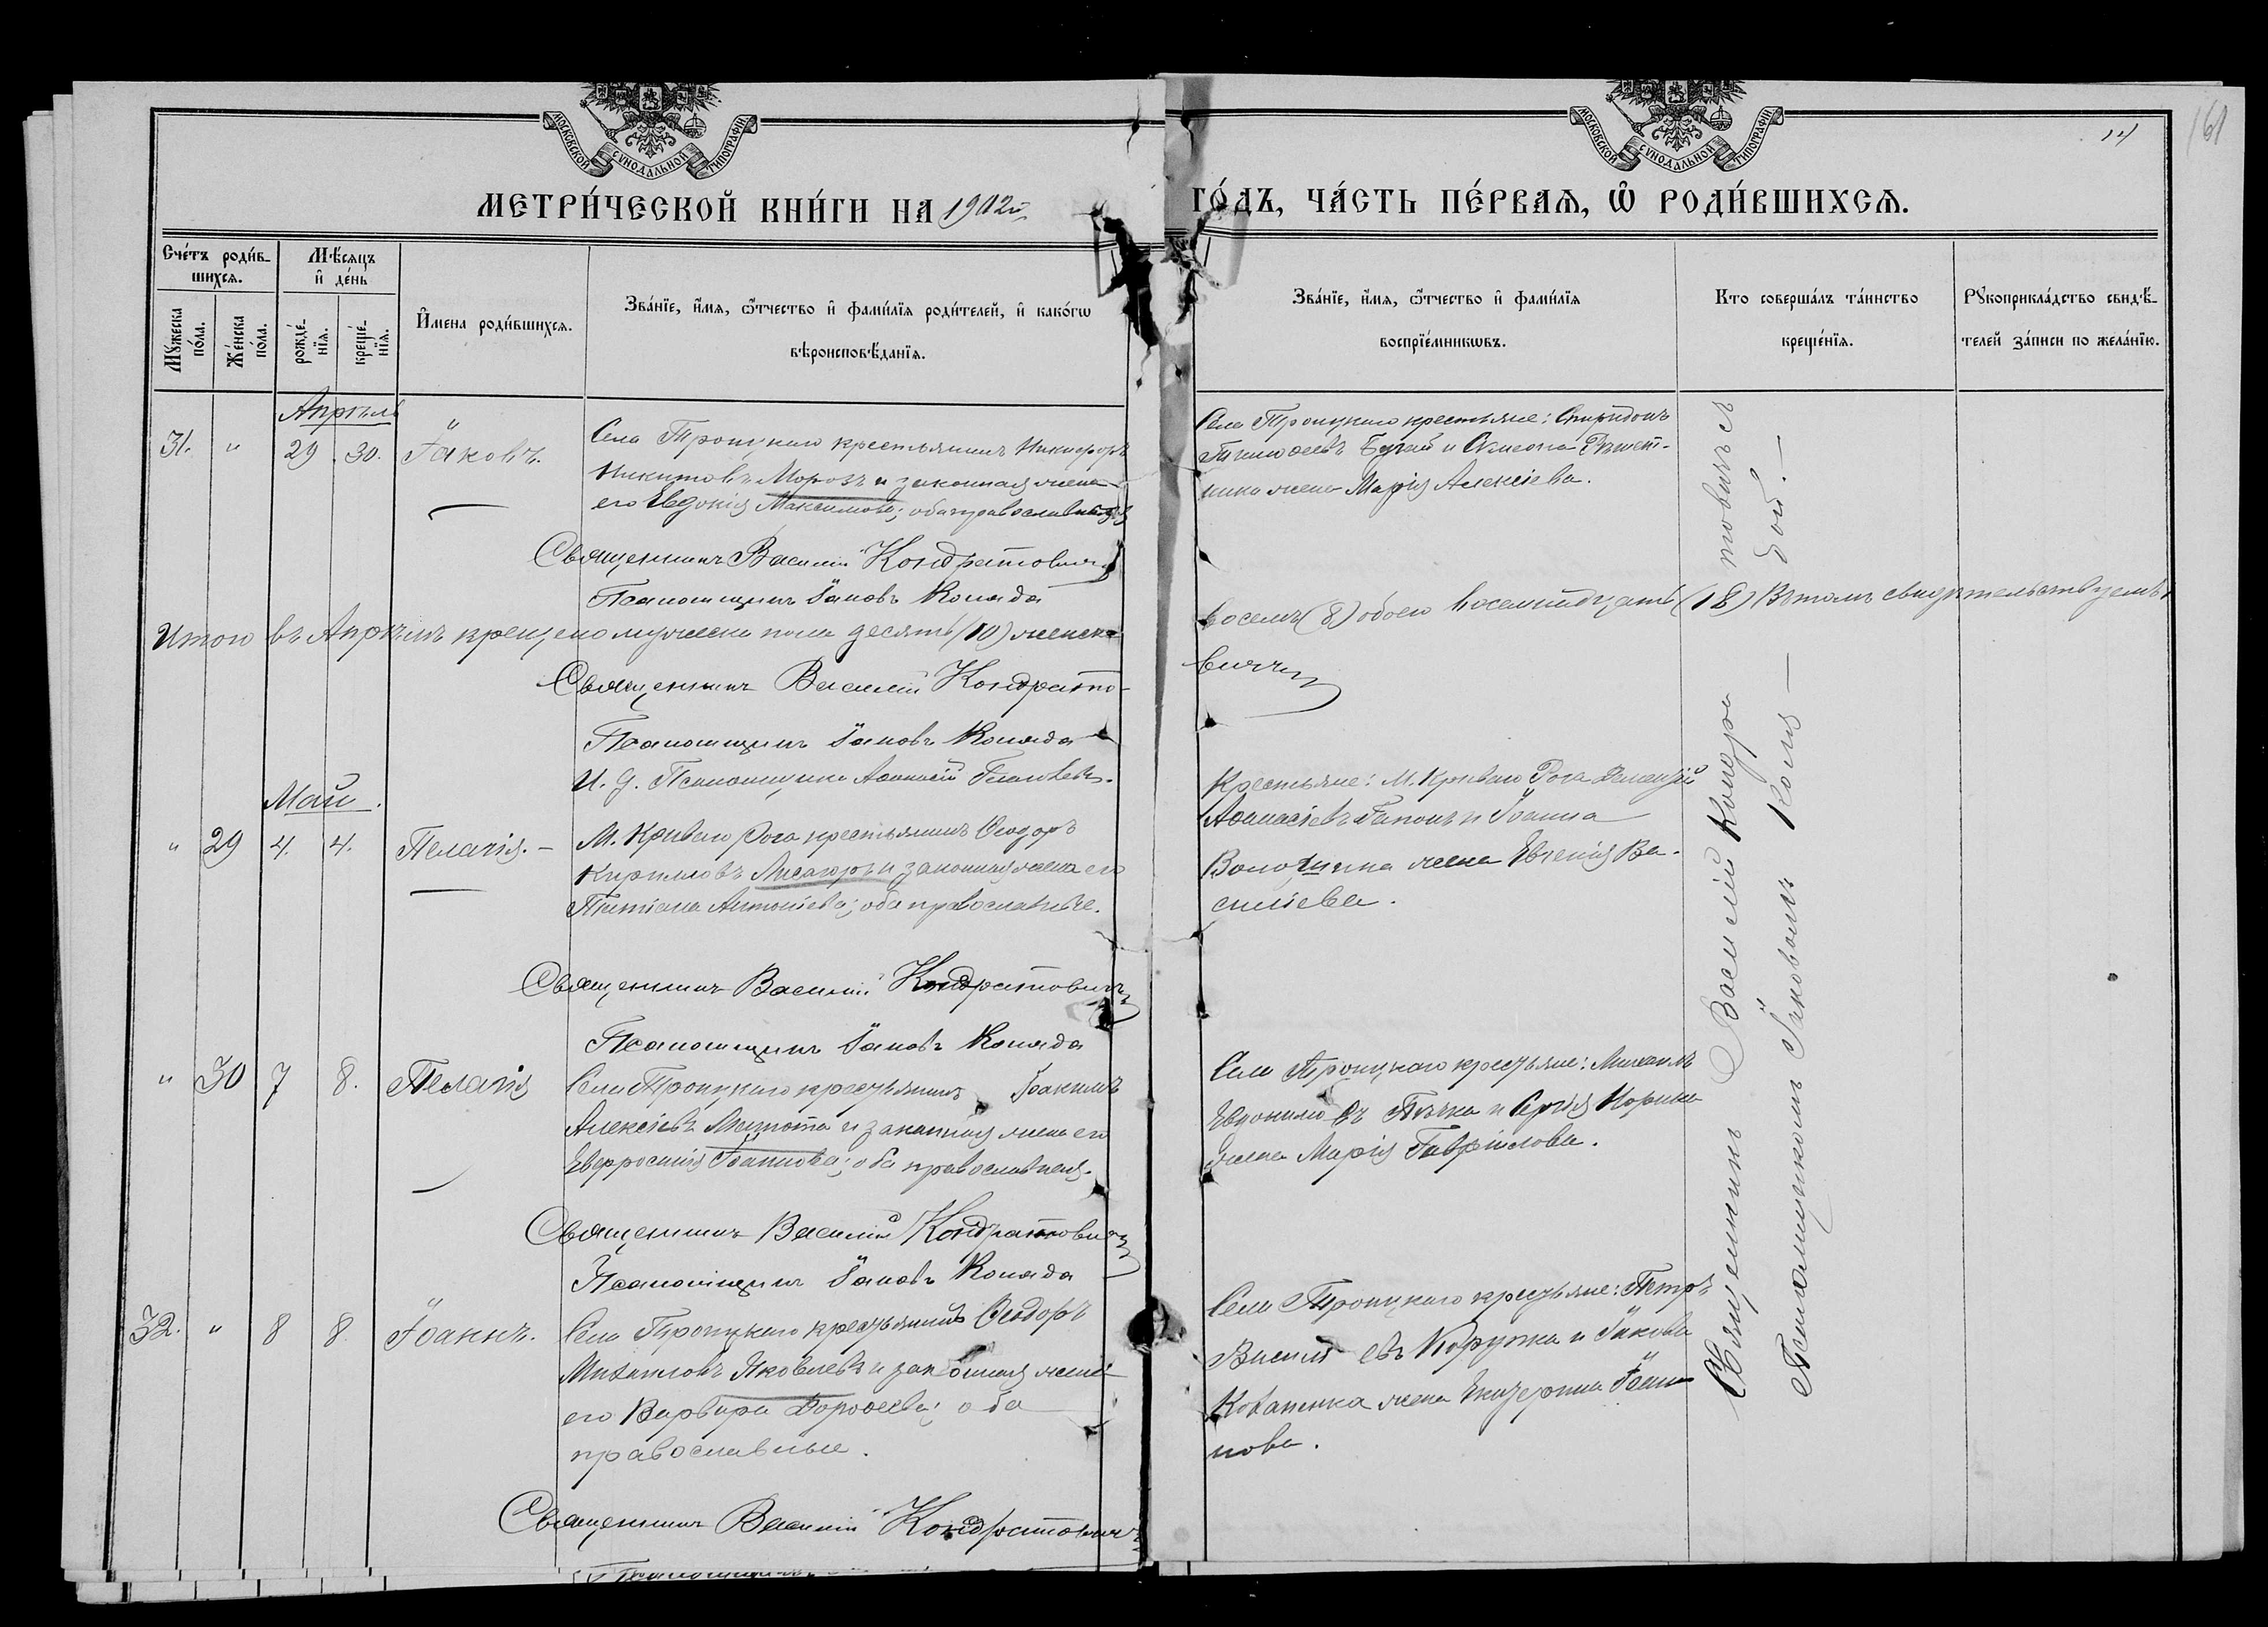 161
14
МОСКОВСКОЙ СѴНОДАЛЬНОЙ ТИПОГРАФІИ
МОСКОВСКОЙ СѴНОДАЛЬНОЙ ТИПОГРАФІИ
МЕТРИ́ЧЕСКОЙ КНИ́ГИ НА 1902й
ГО́ДЪ, ЧА́СТЬ ПЕ́РВАѦ, Ѡ҆ РОДИ́ВШИХСѦ.
Сче́тъ роди́в-
шихсѧ.
Мѣ́сяцъ
и҆ де́нь
Му́жеска
по́ла.
Же́нска
по́ла.
рожде́-
нїѧ.
креще́-
нїѧ.
И҆мена роди́вшихсѧ.
Зва́нїе, и҆́мѧ, ѻ҆́тчество и҆ фами́лїѧ роди́телей, и҆ како́гѡ
вѣроисповѣ́данїѧ.
Зва́нїе, и҆́мѧ, ѻ҆́тчество и҆ фами́лїѧ
воспрїе́мникѡвъ.
Кто соверша́лъ та́инство
креще́нїѧ.
Рꙋкоприкла́дство свидѣ́-
телей за́писи по жела́нїю.
Апрѣль
31. " 29 30. Іаковъ.
Села Троицкаго крестьянинъ Никифоръ
Никитовъ Морозъ и законная жена
его Евдокія Максимова; оба православныя
Священникъ Василій Кондратовичъ
Псаломщикъ Іаковъ Коляда
Села Троицкаго крестьяне: Спиридонъ
Тимоѳеевъ Бугай и Симеона
жена Марія Алексіева.
Итого въ Апрѣлѣ крещено мужеска пола десять (10) женска
восемь (8) обоего восемнадцать (18) Въ томъ свидѣтельствуемъ:
Священникъ Василій Кондрато-
вичъ
Псаломщикъ Іаковъ Коляда
И. д. Псаломщика Аѳанасій
Май.
" 29 4. 4. Пелагія.
М. Криваго Рога крестьянинъ Ѳеодоръ
Кирилловъ Лисагоръ и законная жена его
Татіана Антоніева; оба православные.
Священникъ Василій Кондратовичъ
Псаломщикъ Іаковъ Коляда
Крестьяне: М. Криваго Рога
Аѳанасіевъ Гапонъ и Іоанна
Волошина жена Евгенія Ва-
силіева.
" 30 7 8. Пелагія
Села Троицкаго крестьянинъ Іоакимъ
Алексіевъ и законная жена его
Евфросинія Іоаннова; оба православныя.
Священникъ Василій Кондратовичъ
Псаломщикъ Іаковъ Коляда
Села Троицкаго крестьяне: Михаилъ
Евдокимовъ и Сергія
жена Марія Гавріилова.
32. " 8 8. Іоаннъ.
Села Троицкаго крестьянинъ Ѳеодоръ
Михаиловъ Яковлевъ и законная жена
его Варвара Дороѳеева; оба
православные.
Священникъ Василій Кондратовичъ
Псаломщикъ
Села Троицкаго крестьяне: Петръ
Василіевъ и Іакова
жена Екатерина Іоан-
нова.
Священникъ Василій Кондра
товичъ съ
Псаломщикомъ Іаковомъ Коля
дой.